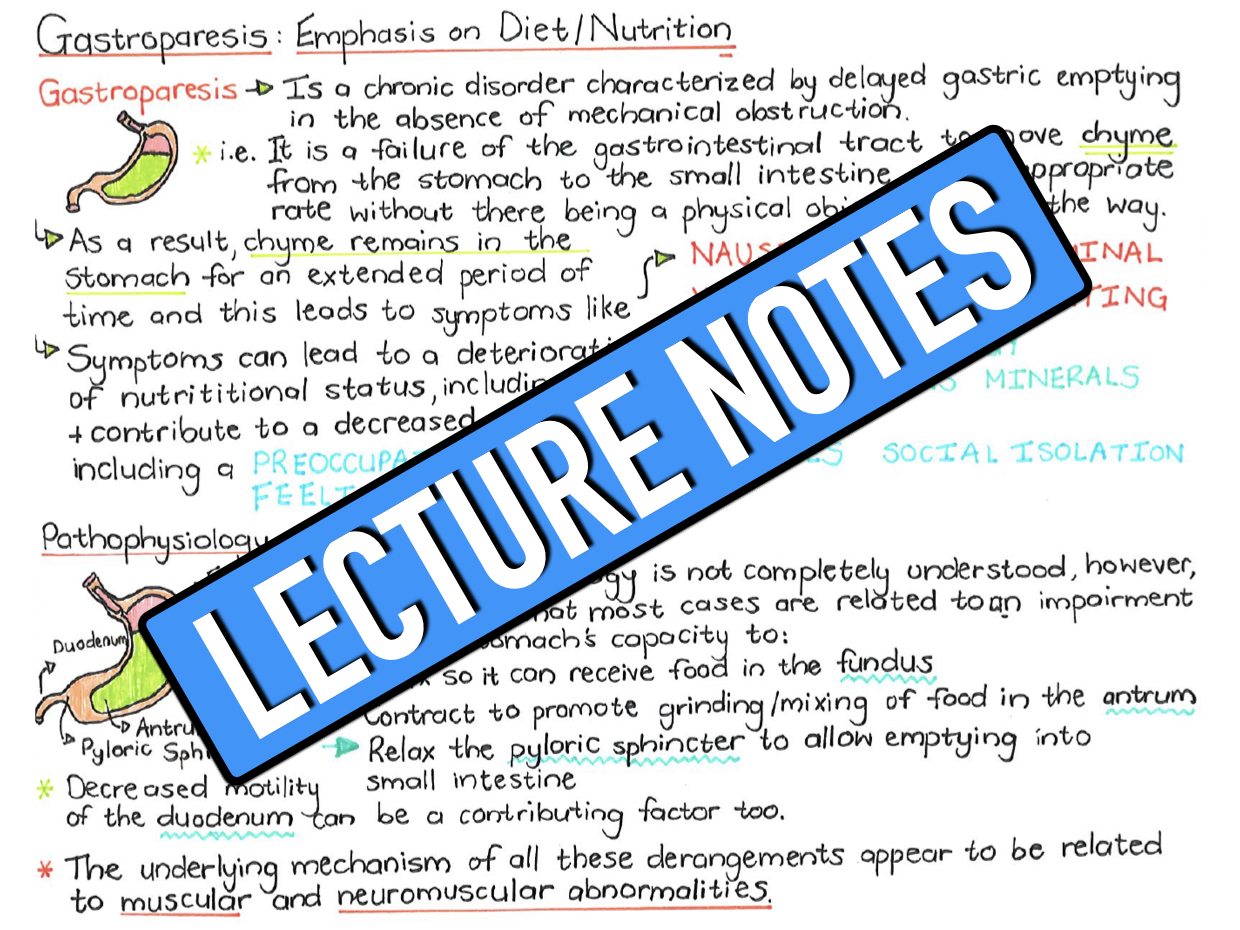 Gastroparesis: Emphasis on Diet/Nutrition
Gastroparesis → Is a chronic disorder characterized by delayed gastric emptying
in the absence of mechanical obstruction.
* i.e. It is a failure of the gastrointestinal tract to move chyme
from the stomach to the small intestine
rate without there being a physical the way.
As a result, chyme remains in the
stomach for an extended period of
time and this leads to symptoms like
Symptoms can lead to a
of nutrititional status,
+ contribute to a decreased
including a
SOCIAL ISOLATION
MINERALS
LECTURE NOTES
Pathophysiology
is not completely understood, however,
most cases are related to an impairment
capacity to:
so it can receive food in the fundus
Contract to promote grinding/mixing of food in the antrum
Relax the pyloric sphincter to allow emptying into
small intestine
Duodenum
Pyloric
* Decreased motility
of the duodenum can be a contributing factor too.
* The underlying mechanism of all these derangements appear to be related
to muscular and neuromuscular abnormalities.